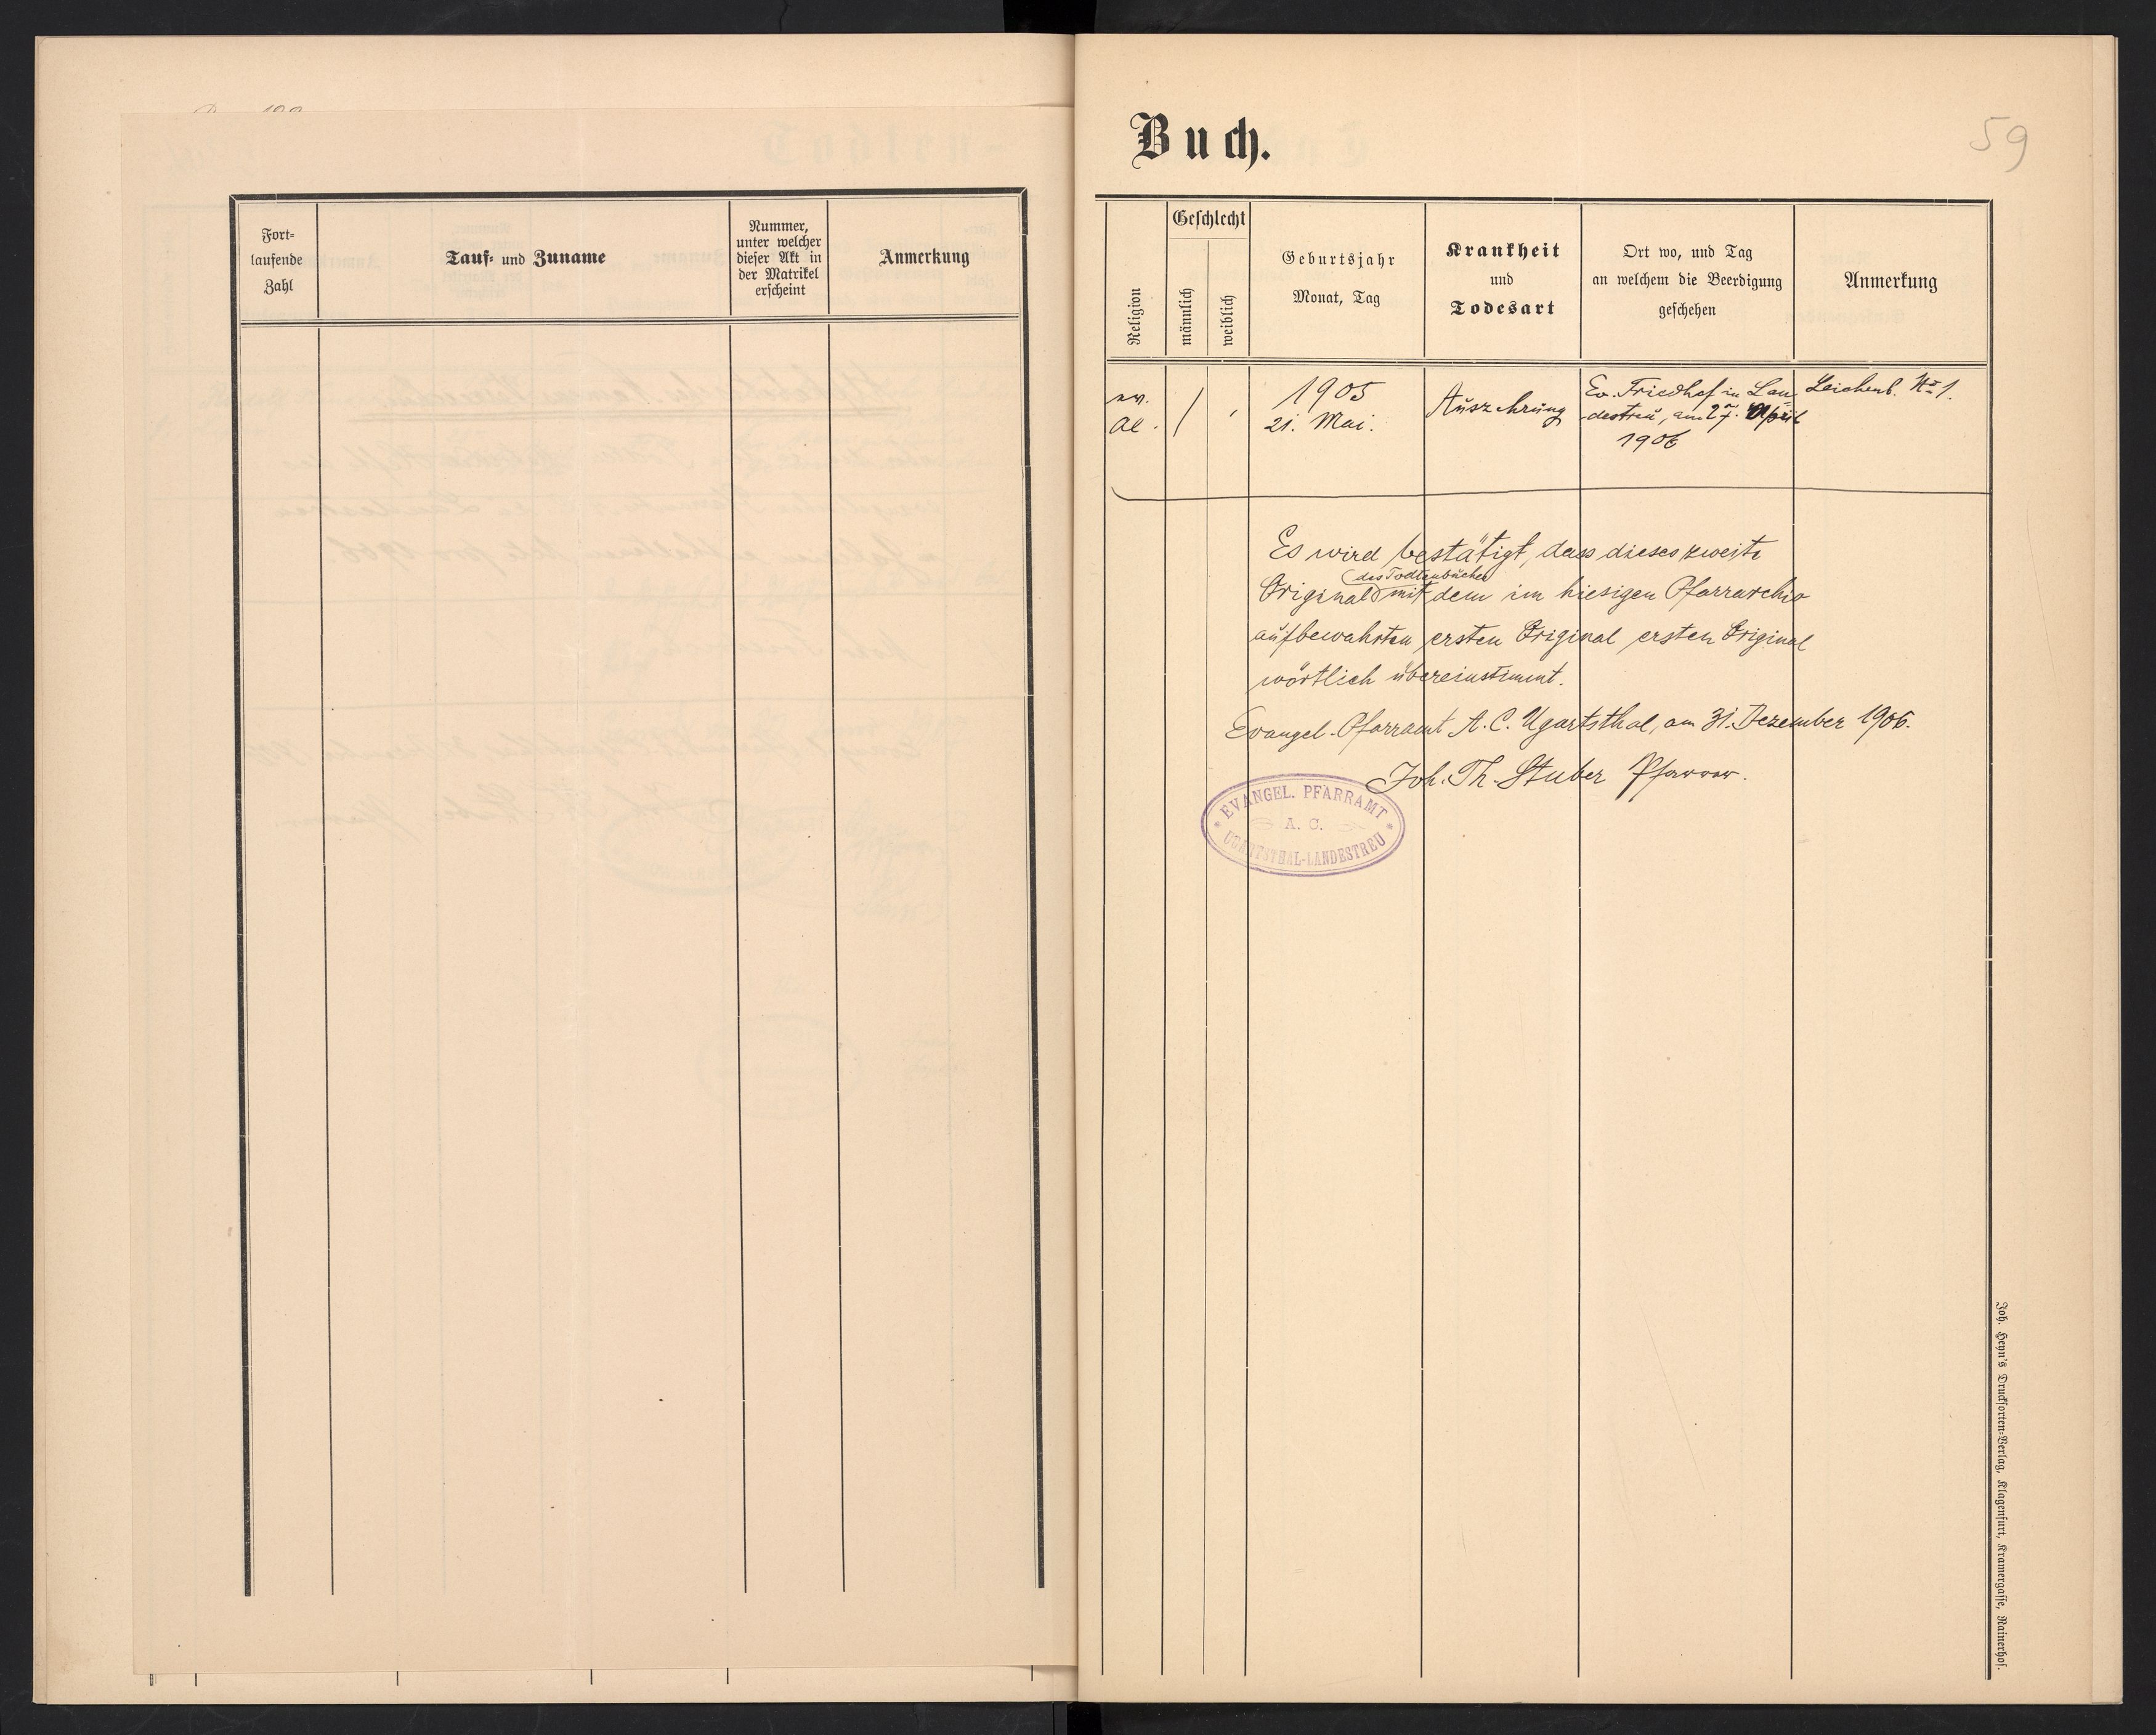 Fort-
laufende
Zahl
Tauf- und Zuname
Nummer,
unter welcher
dieser Akt in
der Matrikel
erscheint
Anmerkung
Buch.
59
Religion
Geschlecht
männlich
weiblich
Geburtsjahr
Monat, Tag
Krankheit
und
Todesart
Ort wo, und Tag
an welchem die Beerdigung
geschehen
Anmerkung
ev.
AC.
1905
21. Mai.
Auszehrung
Ev. Friedhof in Lan
destreu, am 27. April
1906
Leichenb. No 1.
Es wird bestätigt, dass dieses zweite
des Todtenbuches
Original mit dem im hiesigen Pfarrarchiv
aufbewahrten ersten Original ersten Original
wörtlich übereinstimmt.
Evangel. Pfarramt A. C. Ugartsthal, am 31. Dezember 1906.
Joh. Th. Stuber Pfarrer.
EVANGEL. PFARRAMT
A. C.
UGARTSTHAL-LANDESTREU
Joh. Heyn's Drucksorten-Verlag, Klagenfurt, Kramergasse, Rainerhof.